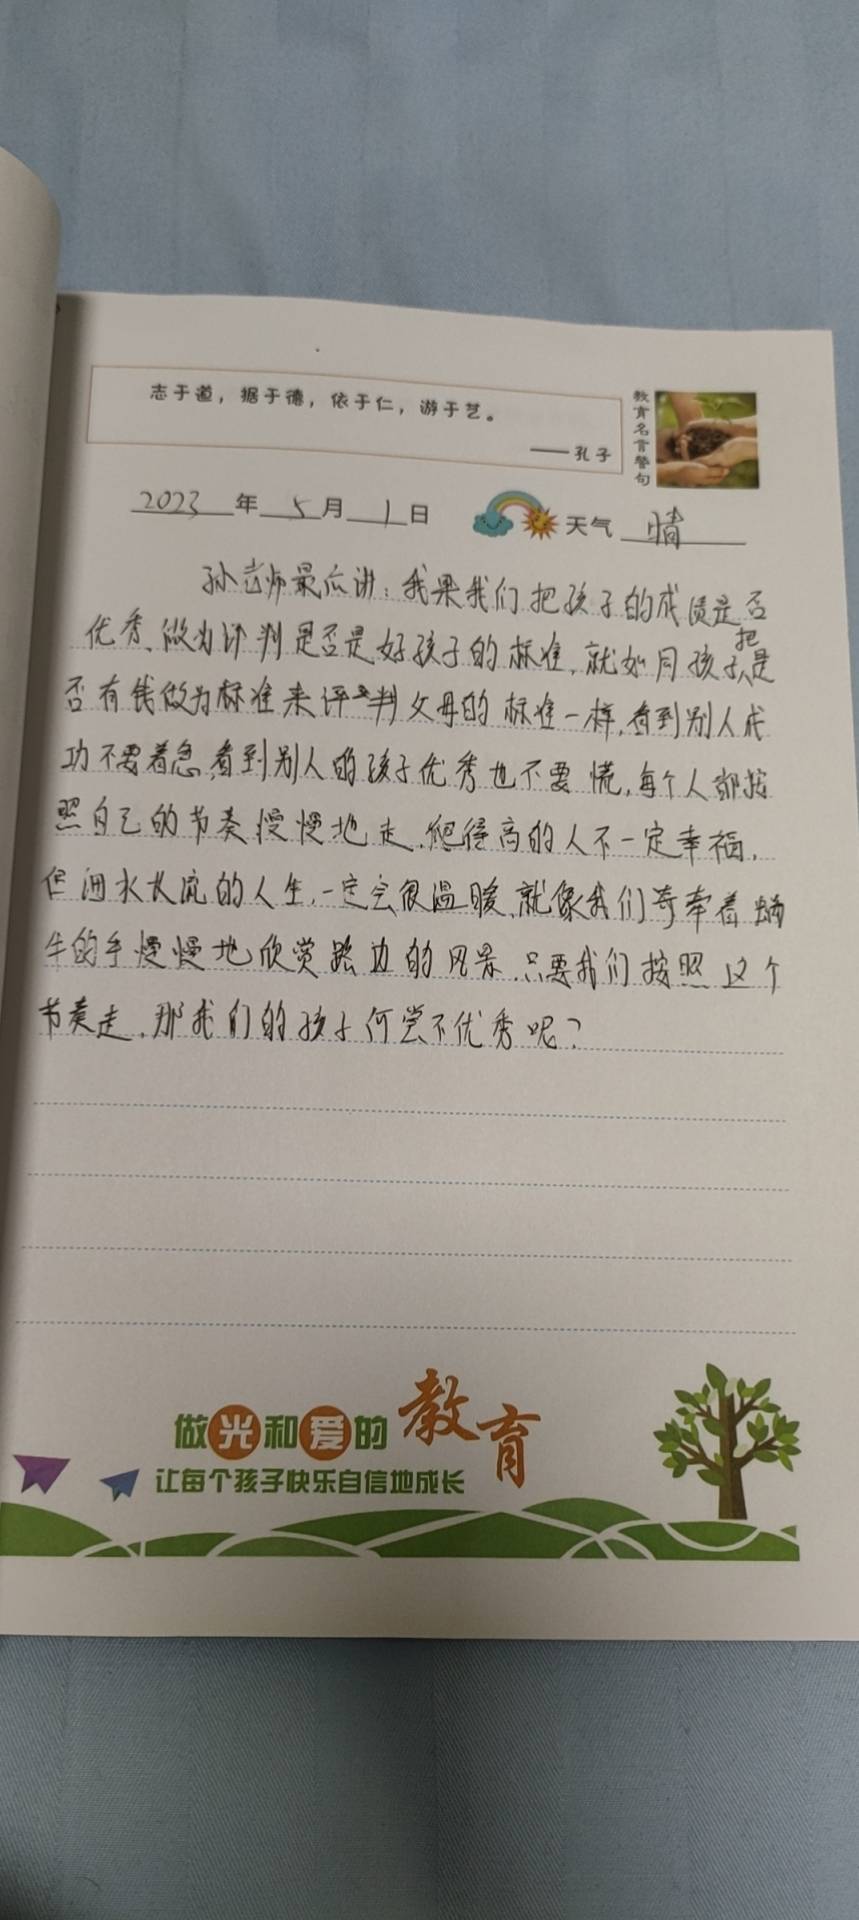 志于道，据于德，依于仁，游于艺。
——孔子
教育名言警句
2023年5月1日 天气 晴
孙老师最后讲：我果我们把孩子的成绩是否
优秀、做为评判是否是好孩子的标准，就如同孩子把是
否有钱做为标准来评判父母的标准一样，看到别人成
功不要着急，看到别人的孩子优秀也不要慌，每个人都按
照自己的节奏慢慢地走，爬得高的人不一定幸福，
但细水长流的人生，一定会很温暖，就像我们牵着蜗
牛的手慢慢地欣赏路边的风景，只要我们按照这个
节奏走，那我们的孩子何尝不优秀呢？
做光和爱的教育
让每个孩子快乐自信地成长